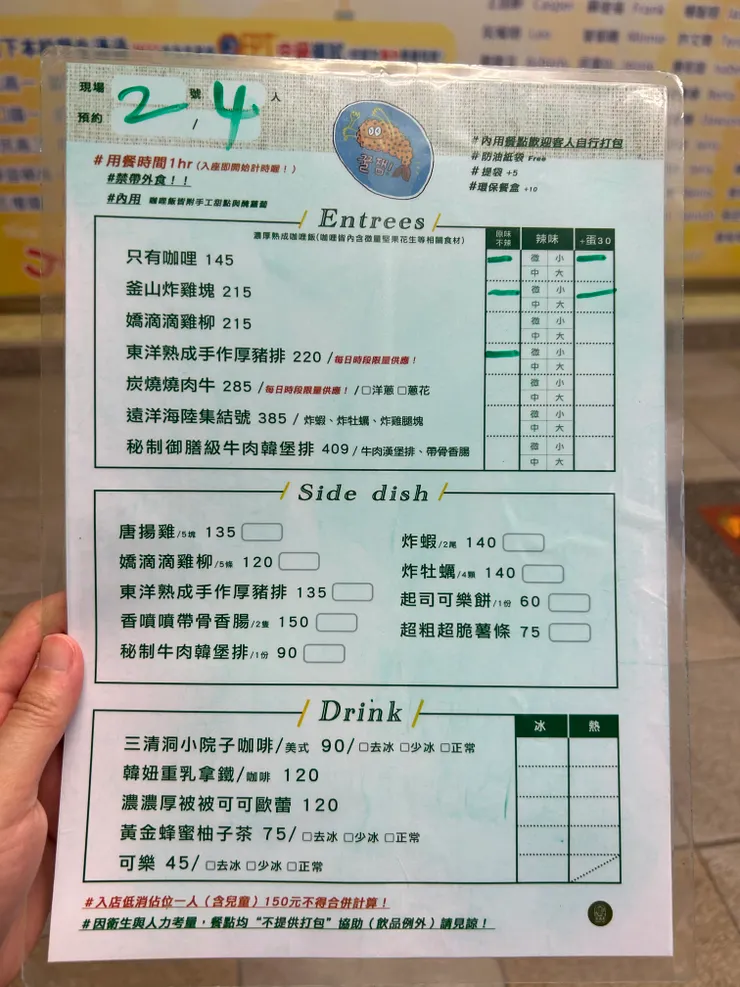 現場 2 號 4 人
預約 /
#用餐時間1hr(入座即開始計時喔!)
#禁帶外食!!
#內用 咖哩飯皆附手工甜點與醃蘿蔔
#內用餐點歡迎客人自行打包
#防油紙袋 Free
#提袋 +5
#環保餐盒 +10
Entrees
濃厚熟成咖哩飯(咖哩皆內含微量堅果花生等相關食材)
原味不辣 辣味 +蛋30
只有咖哩 145 微 小 中 大
釜山炸雞塊 215 微 小 中 大
嬌滴滴雞柳 215 微 小 中 大
東洋熟成手作厚豬排 220 /每日時段限量供應! 微 小 中 大
炭燒燒肉牛 285 /每日時段限量供應! /□洋蔥 □蔥花 微 小 中 大
遠洋海陸集結號 385 / 炸蝦、炸牡蠣、炸雞腿塊 微 小 中 大
秘制御膳級牛肉韓堡排 409 / 牛肉漢堡排、帶骨香腸 微 小 中 大
Side dish
唐揚雞/5塊 135
嬌滴滴雞柳/5條 120
東洋熟成手作厚豬排 135
香噴噴帶骨香腸/2隻 150
秘制牛肉韓堡排/1份 90
炸蝦/2尾 140
炸牡蠣/4顆 140
起司可樂餅/1份 60
超粗超脆薯條 75
Drink
冰 熱
三清洞小院子咖啡/美式 90/□去冰 □少冰 □正常
韓妞重乳拿鐵/咖啡 120
濃濃厚被被可可歐蕾 120
黃金蜂蜜柚子茶 75/ □去冰 □少冰 □正常
可樂 45/ □去冰 □少冰 □正常
#入店低消佔位一人(含兒童)150元不得合併計算!
#因衛生與人力考量,餐點均“不提供打包”協助(飲品例外)請見諒!